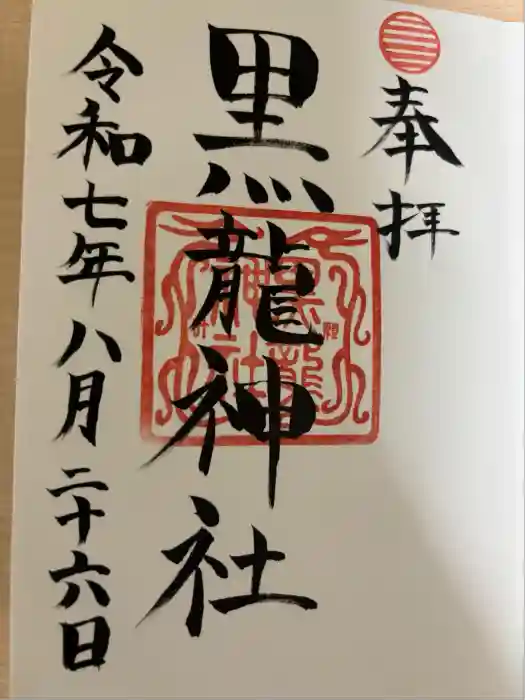 奉拝
黒龍神社
黒龍
神社
令和七年八月二十六日